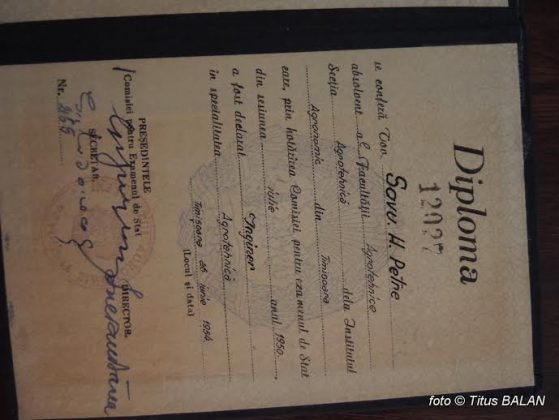 Diploma
12027
se conferă Tov. Savu. H. Petre
absolvent al Facultății Agrotehnice
Secția Agrotehnică dela Institutul
Agronomic din Timișoara
care, prin hotărîrea Comisiei pentru examenul de Stat
din sesiunea iulie anul 1950.
a fost declarat Inginer
în specialitatea Agrotehnică
Timișoara 26 iunie 1954
(Locul și data)
PREȘEDINTELE
Comisiei pentru Examenul de Stat
DIRECTOR,
SECRETAR,
Nr.
foto © Titus BALAN